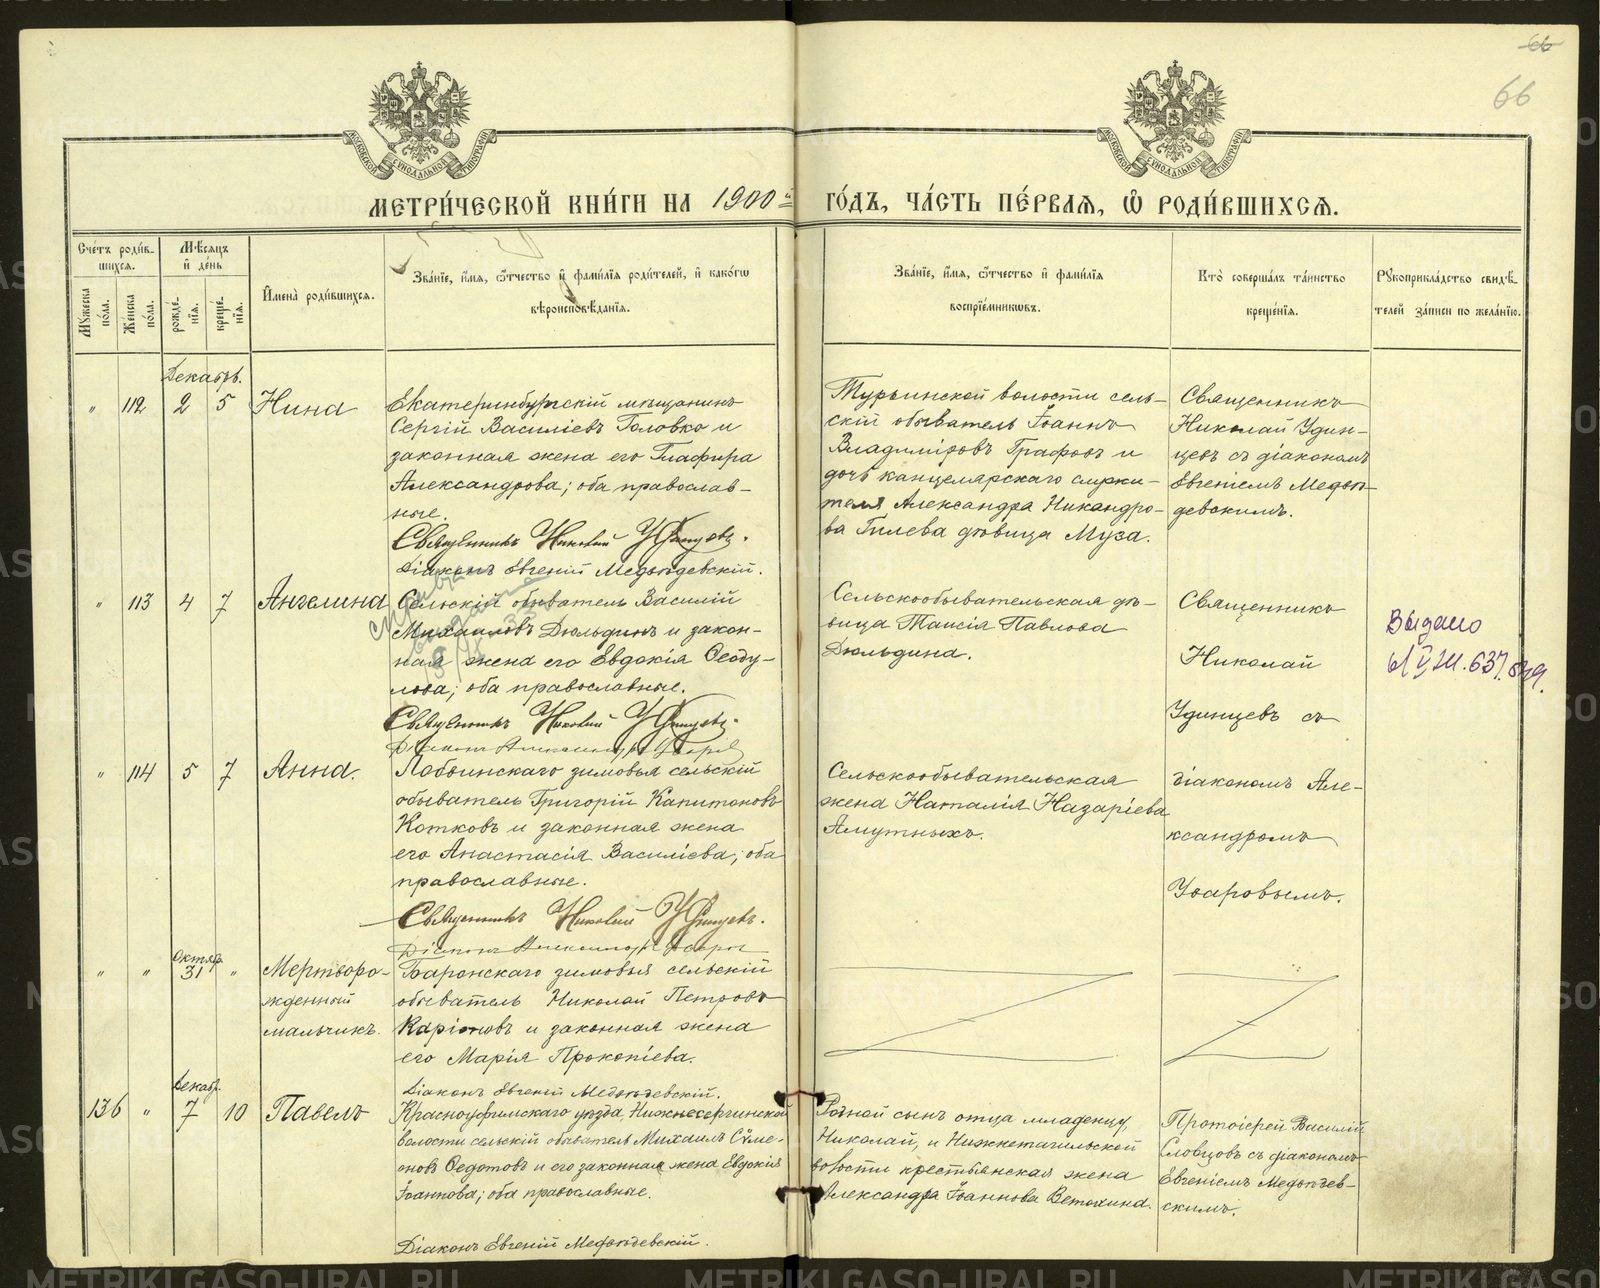 66
66
МОСКОВСКОЙ СѴНОДАЛЬНОЙ ТИПОГРАФІИ
МОСКОВСКОЙ СѴНОДАЛЬНОЙ ТИПОГРАФІИ
МЕТРИ́ЧЕСКОЙ КНИ́ГИ НА 1900й ГО́ДЪ, ЧА́СТЬ ПЕ́РВАЯ, Ѡ РОДИ́ВШИХСЯ.
Сче́тъ роди́в-
шихся.
Мѣ́сяцъ
и́ де́нь
Мꙋжеска по́ла.
Же́нска по́ла.
рожде́-
нїя.
креще́-
нїя.
И҆мена̀ роди́вшихся.
Зва́нїе, и҆́мя, ѻ҆́тчество и҆ фами́лїя роди́телей, и҆ како́гѡ
вѣроисповѣ́данїя.
Зва́нїе, и҆́мя, ѻ҆́тчество и҆ фами́лїя
воспрїе́мникѡвъ.
Кто̀ соверша́лъ та́инство
креще́нїя.
Рꙋкоприкла́дство свидѣ́-
телей за́писи по жела́нїю.
Декабрь.
" 112 2 5 Нина
Екатеринбургскій мѣщанинъ
Сергій Василіевъ Головко и
законная жена его Глафира
Александрова; оба православ-
ные.
Священникъ Николай Удинцевъ.
Діаконъ Евгеній Медвѣдевскій.
Турьинской волости сель-
скій обыватель Іоаннъ
Владиміровъ Графовъ и
дочь канцелярскаго служи-
теля Александра Никандро-
ва Гилева дѣвица Муза.
Священникъ
Николай Удин-
цевъ съ діакономъ
Евгеніемъ Медвѣ-
девскимъ.
" 113 4 7 Ангелина
Сельскій обыватель Василій
Михаиловъ Дюльдинъ и закон-
ная жена его Евдокія Ѳеоду-
лова; оба православные.
Священникъ Николай Удинцевъ.
Діаконъ Александръ Уваровъ
Сельскообывательская дѣ-
вица Таисія Павлова
Дюльдина.
Священникъ
Николай
Удинцевъ съ
діакономъ Але-
ксандромъ
Уваровымъ.
Выдано
" 114 5 7 Анна.
Лобвинскаго зимовья сельскій
обыватель Григорій Капитоновъ
Котковъ и законная жена
его Анастасія Василіева; оба
православные.
Священникъ Николай Удинцевъ.
Діаконъ Александръ Уваровъ
Сельскообывательская
жена Наталія Назаріева
Ямутныхъ.
Октябр.
" " 31 " Мертворо-
жденный
мальчикъ.
сельскій
обыватель Николай Петровъ
и законная жена
его Марія Прокопіева.
Діаконъ Евгеній Медвѣдевскій.
Декабр.
136 " 7 10 Павелъ
Красноуфимскаго уѣзда, Нижнесергинской
волости сельскій обыватель Михаилъ Сѵме-
оновъ Ѳедотовъ и его законная жена Евдокія
Іоаннова; оба православные.
Діаконъ Евгеній Медвѣдевскій.
Родной сынъ отца младенцу
Николай, и Нижнетагильской
волости крестьянская жена
Александра Іоаннова Ветохина.
Протоіерей Василій
Словцовъ съ діакономъ
Евгеніемъ Медвѣдев-
скимъ.
METRIKI.GASO-URAL.RU